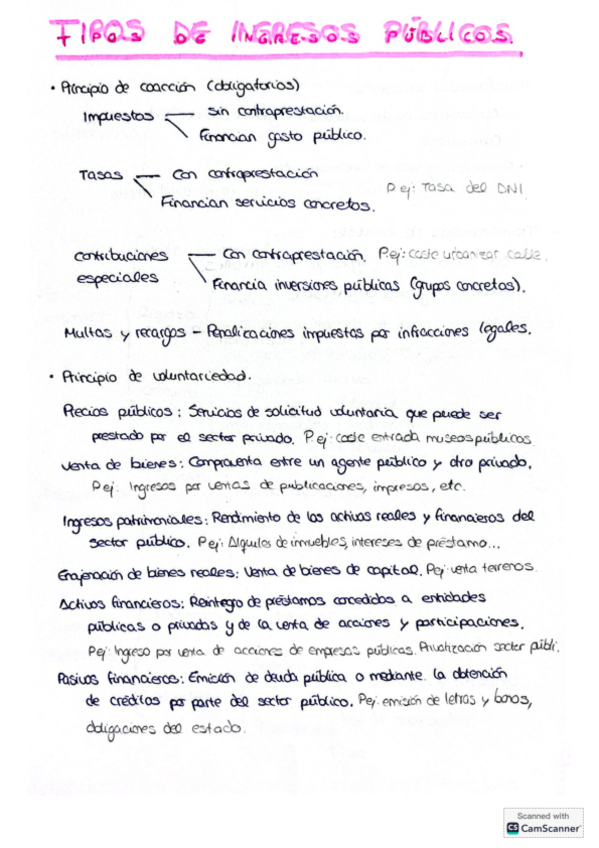 TIPOS DE INGRESOS PÚBLICOS.
• Principio de coacción (obligatorios)
Impuestos — sin contraprestación.
Financian gasto público.
Tasas — Con contraprestación
Financian servicios concretos.
P ej: Tasa del DNI
contribuciones especiales — Con contraprestación. P.ej: coste urbanizar calle.
Financia inversiones públicas (grupos concretos).
Multas y recargos – Penalizaciones impuestas por infracciones legales.
• Principio de voluntariedad.
Precios públicos: Servicios de solicitud voluntaria que puede ser
prestado por el sector privado. P ej: coste entrada museos públicos
Venta de bienes: Compraventa entre un agente público y otro privado.
Pej: Ingresos por ventas de publicaciones, impresos, etc.
Ingresos patrimoniales: Rendimiento de los activos reales y financieros del
sector público. Pej: Alquileres de inmuebles, intereses de préstamo...
Enajenación de bienes reales: Venta de bienes de capital. Pej: venta terrenos.
Activos financieros: Reintegro de préstamos concedidos a entidades
públicas o privadas y de la venta de acciones y participaciones.
Pej: Ingreso por venta de acciones de empresas públicas. Privatización sector públi.
Pasivos financieros: Emisión de deuda pública o mediante la obtención
de créditos por parte del sector público. Pej: emisión de letras y bonos,
obligaciones del estado.
Scanned with
CS CamScanner